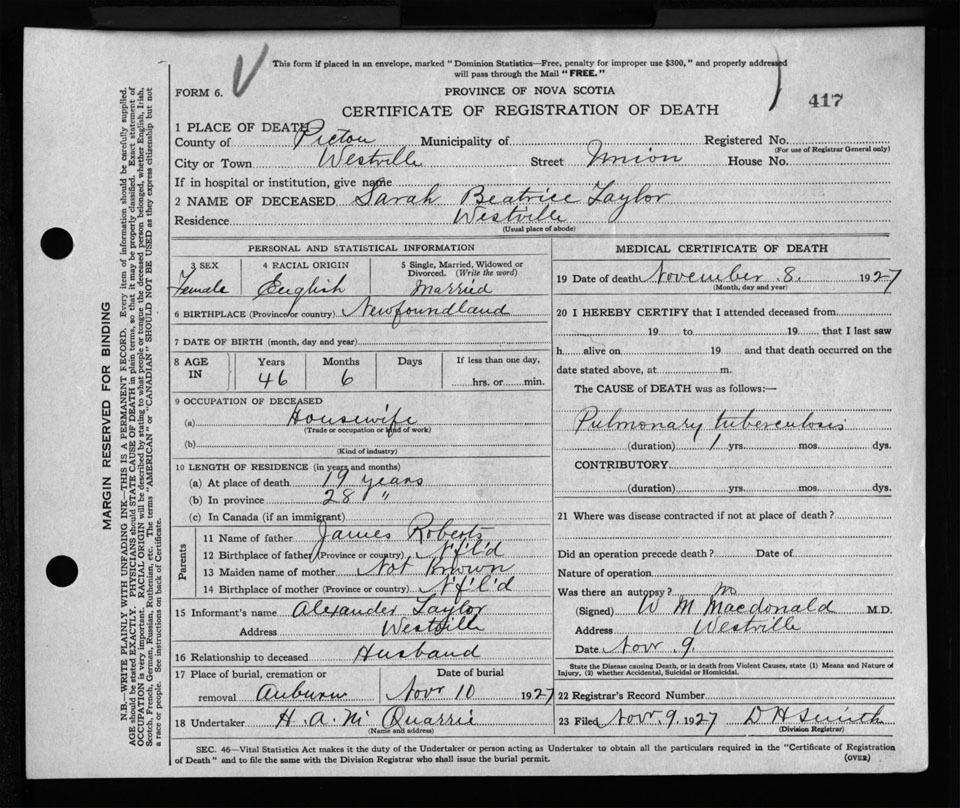 This form if placed in an envelope, marked "Dominion Statistics—Free, penalty for improper use $300," and properly addressed
will pass through the Mail "FREE."
FORM 6.
PROVINCE OF NOVA SCOTIA
CERTIFICATE OF REGISTRATION OF DEATH
417
1 PLACE OF DEATH
County of Pictou Municipality of Registered No.
(For use of Registrar General only)
City or Town Westville Street Union House No.
If in hospital or institution, give name
2 NAME OF DECEASED Sarah Beatrice Taylor
Residence Westville
(Usual place of abode)
PERSONAL AND STATISTICAL INFORMATION
3 SEX Female
4 RACIAL ORIGIN English
5 Single, Married, Widowed or Divorced. (Write the word) Married
6 BIRTHPLACE (Province or country) Newfoundland
7 DATE OF BIRTH (month, day and year)
8 AGE IN Years 46 Months 6 Days If less than one day, hrs. or min.
9 OCCUPATION OF DECEASED
(a) Housewife
(Trade or occupation or kind of work)
(b)
(Kind of industry)
10 LENGTH OF RESIDENCE (in years and months)
(a) At place of death 19 years
(b) In province 28 "
(c) In Canada (if an immigrant)
Parents
11 Name of father James Roberts
12 Birthplace of father (Province or country) N'f'l'd
13 Maiden name of mother Not Known
14 Birthplace of mother (Province or country) N'f'l'd
15 Informant's name Alexander Taylor
Address Westville
16 Relationship to deceased Husband
17 Place of burial, cremation or removal Auburn
Date of burial Novr 10 1927
18 Undertaker H. A. Mc Quarrie
(Name and address)
MEDICAL CERTIFICATE OF DEATH
19 Date of death November 8. 1927
(Month, day and year)
20 I HEREBY CERTIFY that I attended deceased from
19 to 19 , that I last saw
h alive on 19 and that death occurred on the
date stated above, at m.
The CAUSE of DEATH was as follows:—
Pulmonary tuberculosis
(duration) 1 yrs. mos. dys.
CONTRIBUTORY
(duration) yrs. mos. dys.
21 Where was disease contracted if not at place of death?
Did an operation precede death? Date of
Nature of operation
Was there an autopsy? no
(Signed) W M Macdonald M.D.
Address Westville
Date Novr. 9.
State the Disease causing Death, or in death from Violent Causes, state (1) Means and Nature of
Injury, (2) whether Accidental, Suicidal or Homicidal.
22 Registrar's Record Number
23 Filed Novr. 9. 1927 D H Smith
(Division Registrar)
SEC. 46—Vital Statistics Act makes it the duty of the Undertaker or person acting as Undertaker to obtain all the particulars required in the "Certificate of Registration
of Death" and to file the same with the Division Registrar who shall issue the burial permit.
(OVER)
MARGIN RESERVED FOR BINDING
N.B.—WRITE PLAINLY WITH UNFADING INK—THIS IS A PERMANENT RECORD. Every item of information should be carefully supplied.
AGE should be stated EXACTLY. PHYSICIANS should STATE CAUSE OF DEATH in plain terms, so that it may be properly classified. Exact statement of
OCCUPATION is very important. RACIAL ORIGIN will be described by stating to what people or tongue the deceased person belonged, whether English, Irish,
Scotch, French, German, Russian, Ruthenian, etc. The terms "AMERICAN" or "CANADIAN" SHOULD NOT BE USED as they express citizenship but not
a race or people. See instructions on back of Certificate.